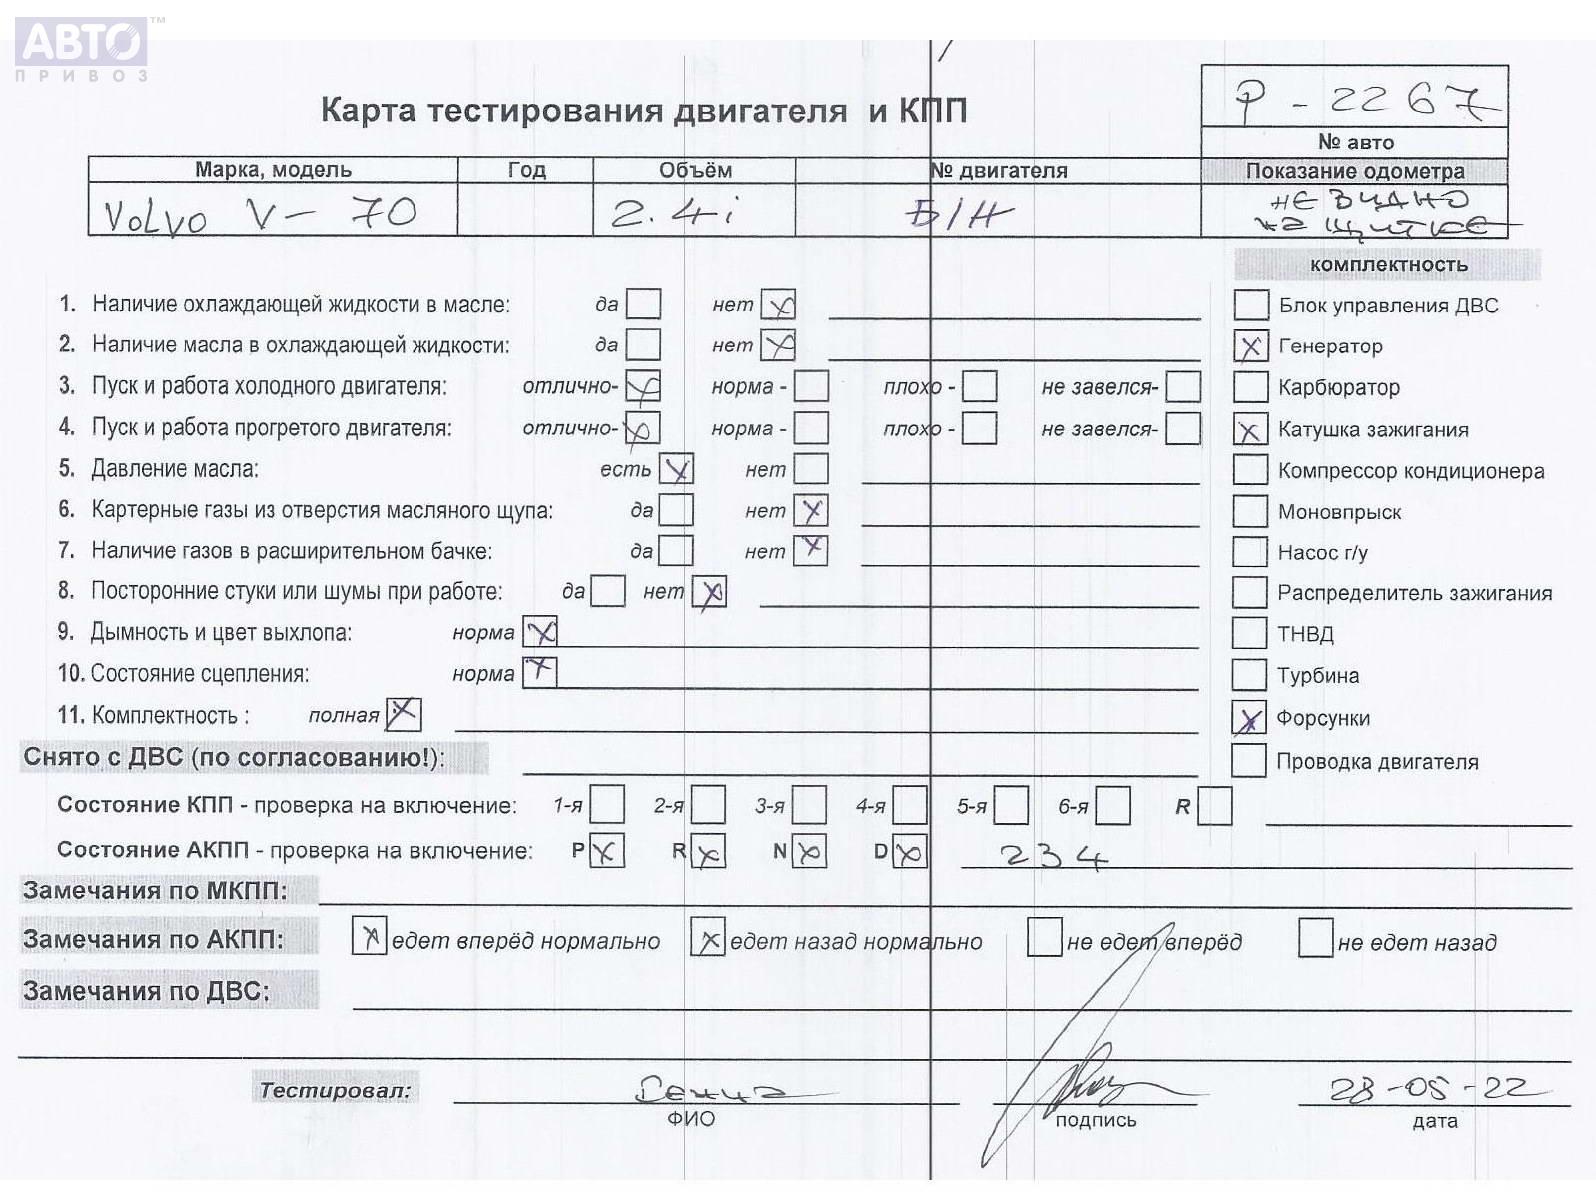 АВТО™
ПРИВОЗ
Карта тестирования двигателя и КПП
Р - 2267
№ авто
Марка, модель Год Объём № двигателя Показание одометра
Volvo V - 70 2.4i Б/Н НЕ ВИДНО
на щитке
комплектность
1. Наличие охлаждающей жидкости в масле: да нет Блок управления ДВС
2. Наличие масла в охлаждающей жидкости: да нет Генератор
3. Пуск и работа холодного двигателя: отлично- норма - плохо - не завелся- Карбюратор
4. Пуск и работа прогретого двигателя: отлично- норма - плохо - не завелся- Катушка зажигания
5. Давление масла: есть нет Компрессор кондиционера
6. Картерные газы из отверстия масляного щупа: да нет Моновпрыск
7. Наличие газов в расширительном бачке: да нет Насос г/у
8. Посторонние стуки или шумы при работе: да нет Распределитель зажигания
9. Дымность и цвет выхлопа: норма ТНВД
10. Состояние сцепления: норма Турбина
11. Комплектность : полная Форсунки
Снято с ДВС (по согласованию!): Проводка двигателя
Состояние КПП - проверка на включение: 1-я 2-я 3-я 4-я 5-я 6-я R
Состояние АКПП - проверка на включение: P R N D 234
Замечания по МКПП:
Замечания по АКПП: едет вперёд нормально едет назад нормально не едет вперёд не едет назад
Замечания по ДВС:
Тестировал: 28-05-22
ФИО подпись дата